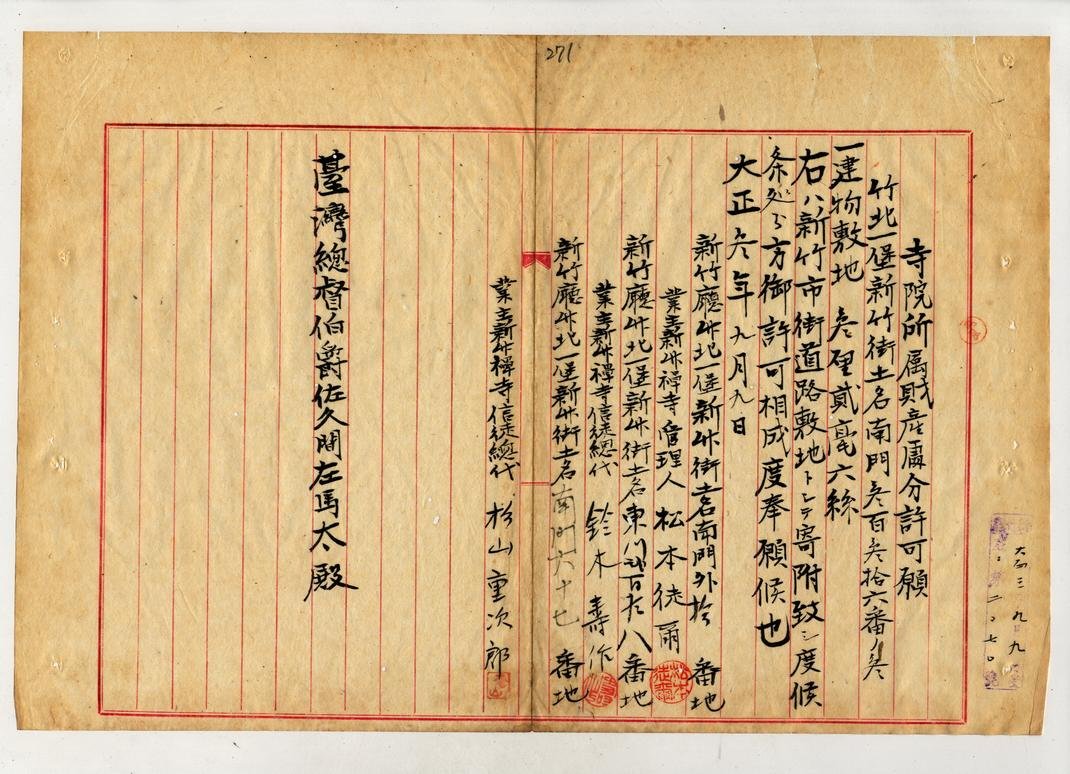 271
寺院所属財産處分許可願
竹北一堡新竹街土名南門叁百叁拾六番ノ叁
一建物敷地 叁厘貳毫六絲
右ハ新竹市街道路敷地トシテ寄附致シ度候
条処分方御許可相成度奉願候也
大正叁年九月九日
新竹廳竹北一堡新竹街土名南門外拾 番地
業主新竹禅寺管理人 松本徒爾
新竹廳竹北一堡新竹街土名東門 百 八番地
業主新竹禅寺信徒總代 鈴木壽作
新竹廳竹北一堡新竹街土名南門六十七 番地
業主新竹禅寺信徒總代 杉山重次郎
臺灣總督伯爵佐久間左馬太殿